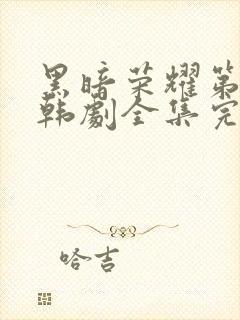 黑暗荣耀第
韩剧全集完
哈吉